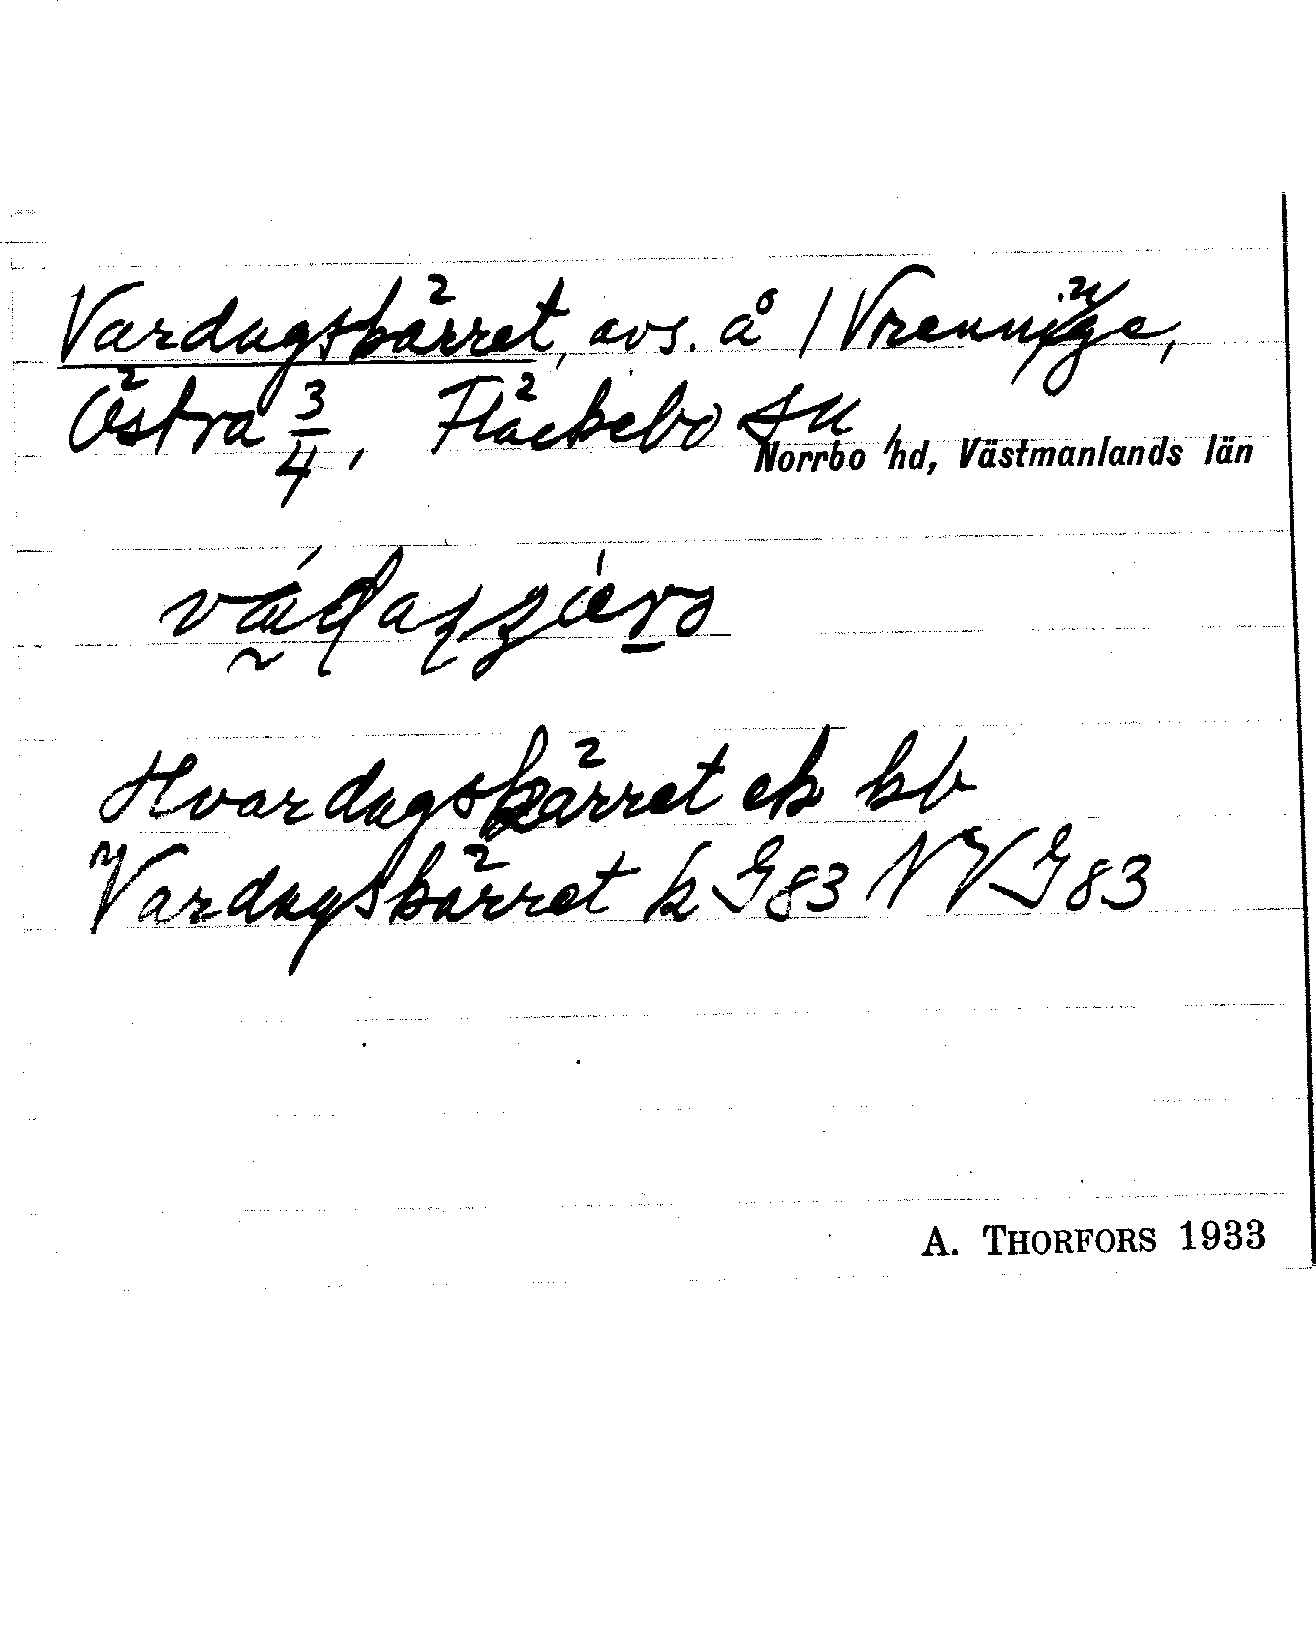 Vardagskärret, avs. å / Vrenninge,
Östra 3/4, Fläckebo sn,
Norrbo hd, Västmanlands län
Hvardagskärret ek kb
Vardagskärret k G83 NVG83
A. THORFORS 1933